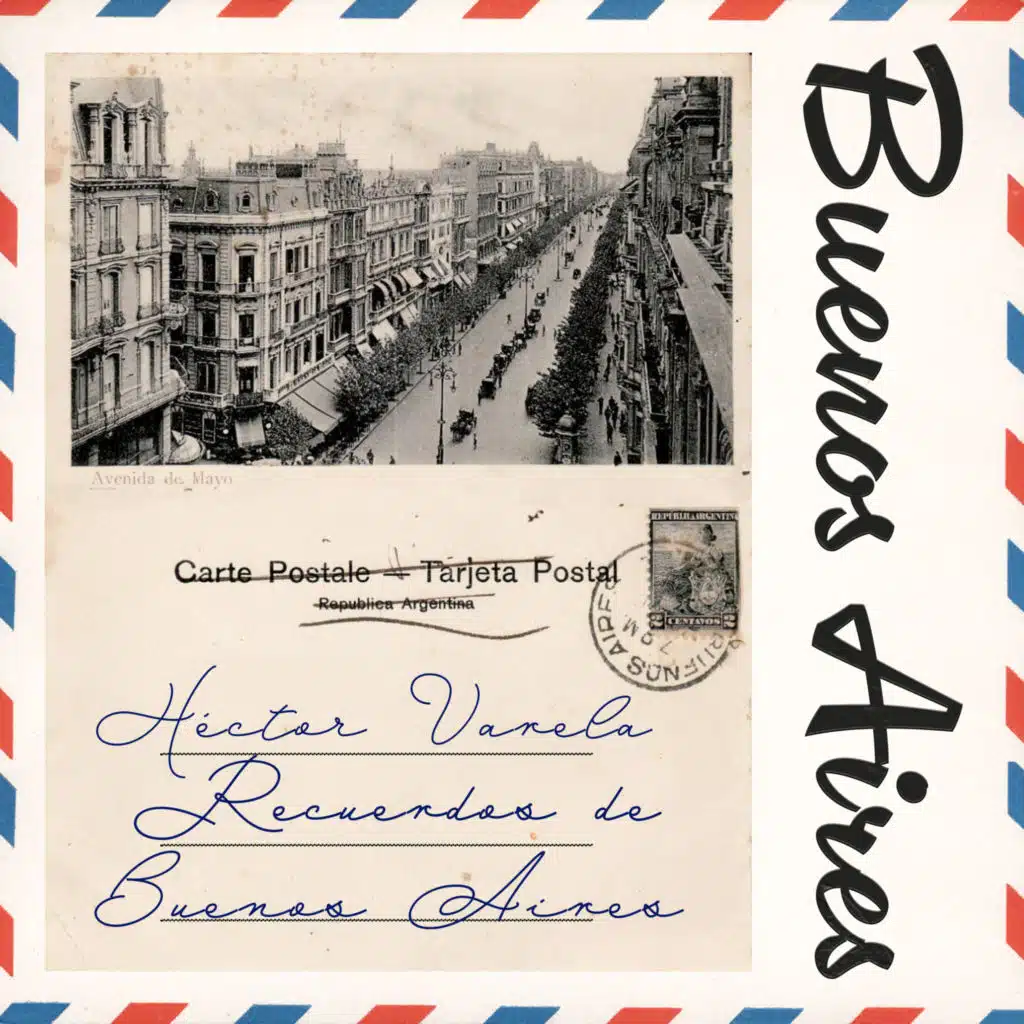 Buenos Aires
Avenida de Mayo
Carte Postale — Tarjeta Postal
Republica Argentina
REPUBLICA ARGENTINA
2 CENTAVOS 2
BUENOS AIRES
7 PM
Héctor Varela
Recuerdos de
Buenos Aires